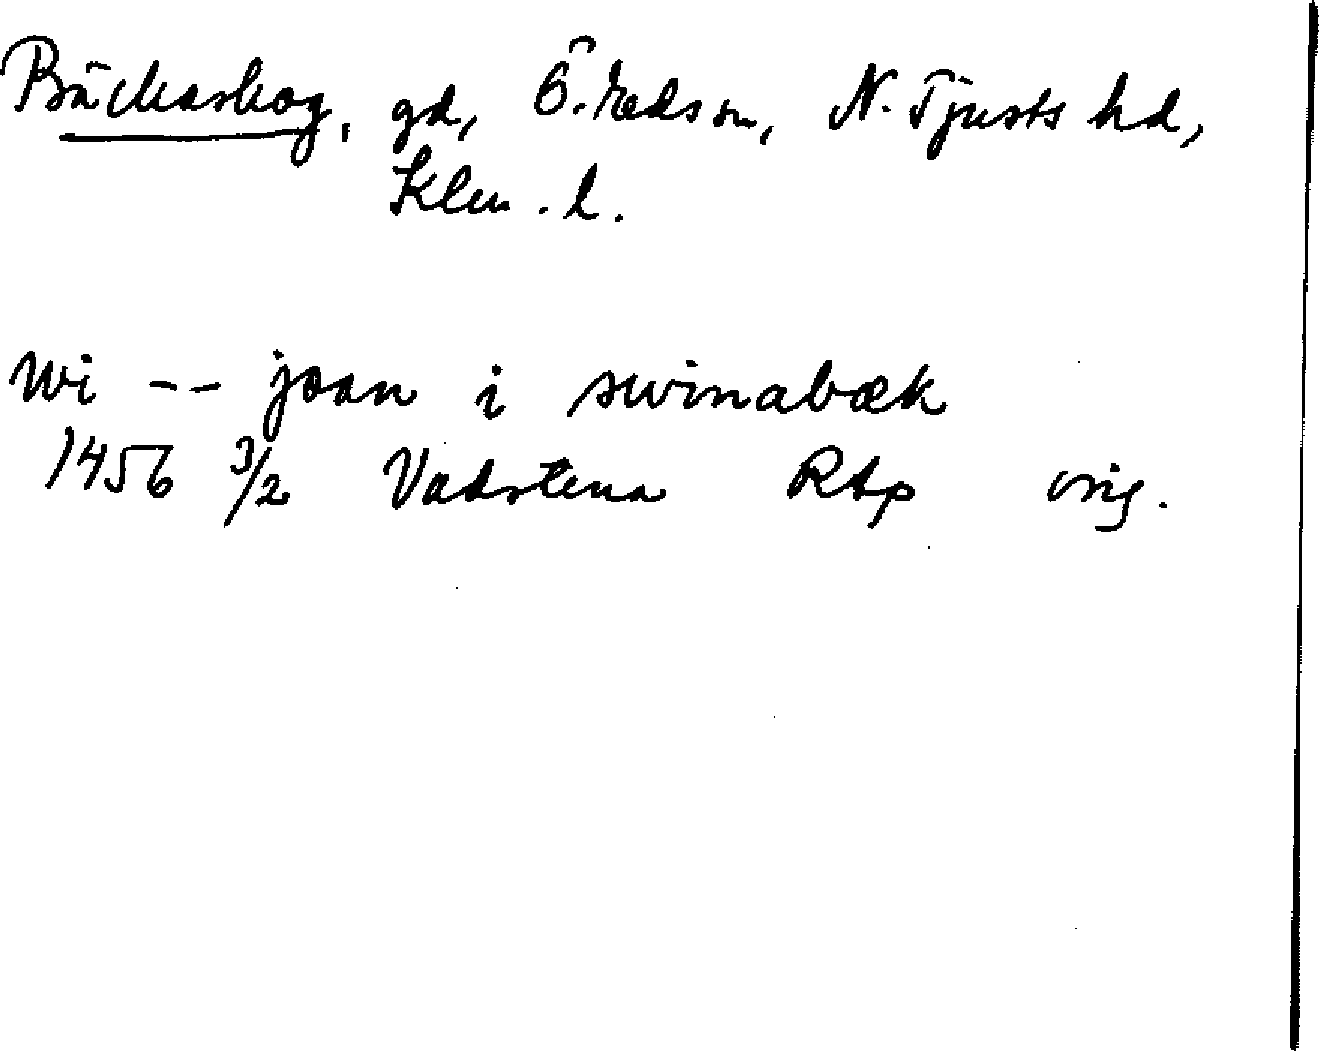 Bäckaskog, gd, Ö. Eds sn, N. Tjusts hd,
Klm. l.
Wi -- joan i swinabæk
1456 3/2 Vadstena RAp orig.